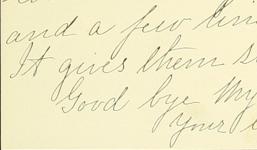 and a few
It gives them
Good bye My
Your